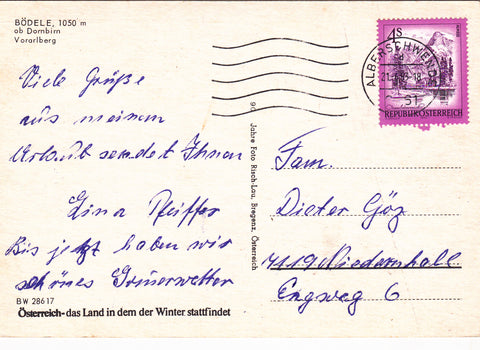 BÖDELE, 1050 m
ob Dornbirn
Vorarlberg
Viele Grüße
aus meinem
Urlaub sendet Ihnen
Lina Pfeiffer
Bis jetzt haben wir
schönes Sommerwetter
BW 28617
Österreich-das Land in dem der Winter stattfindet
Jahre Foto Risch-Lau, Bregenz, Österreich
4S
REPUBLIK ÖSTERREICH
ALBERSCHWENDE
Fam.
Dieter Göz
7119 Niedernhall
Engweg 6